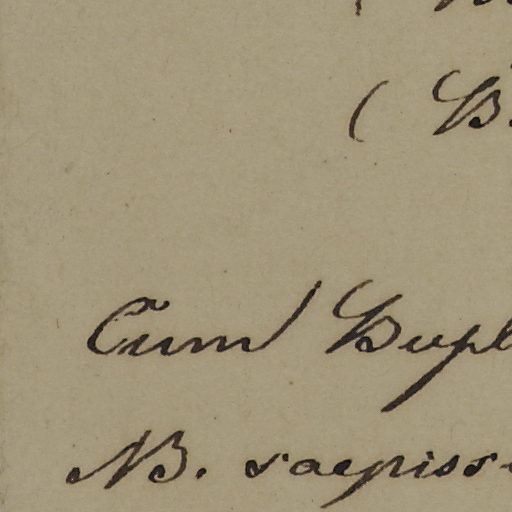 (
(
Cum Dupl
NB. saepiss